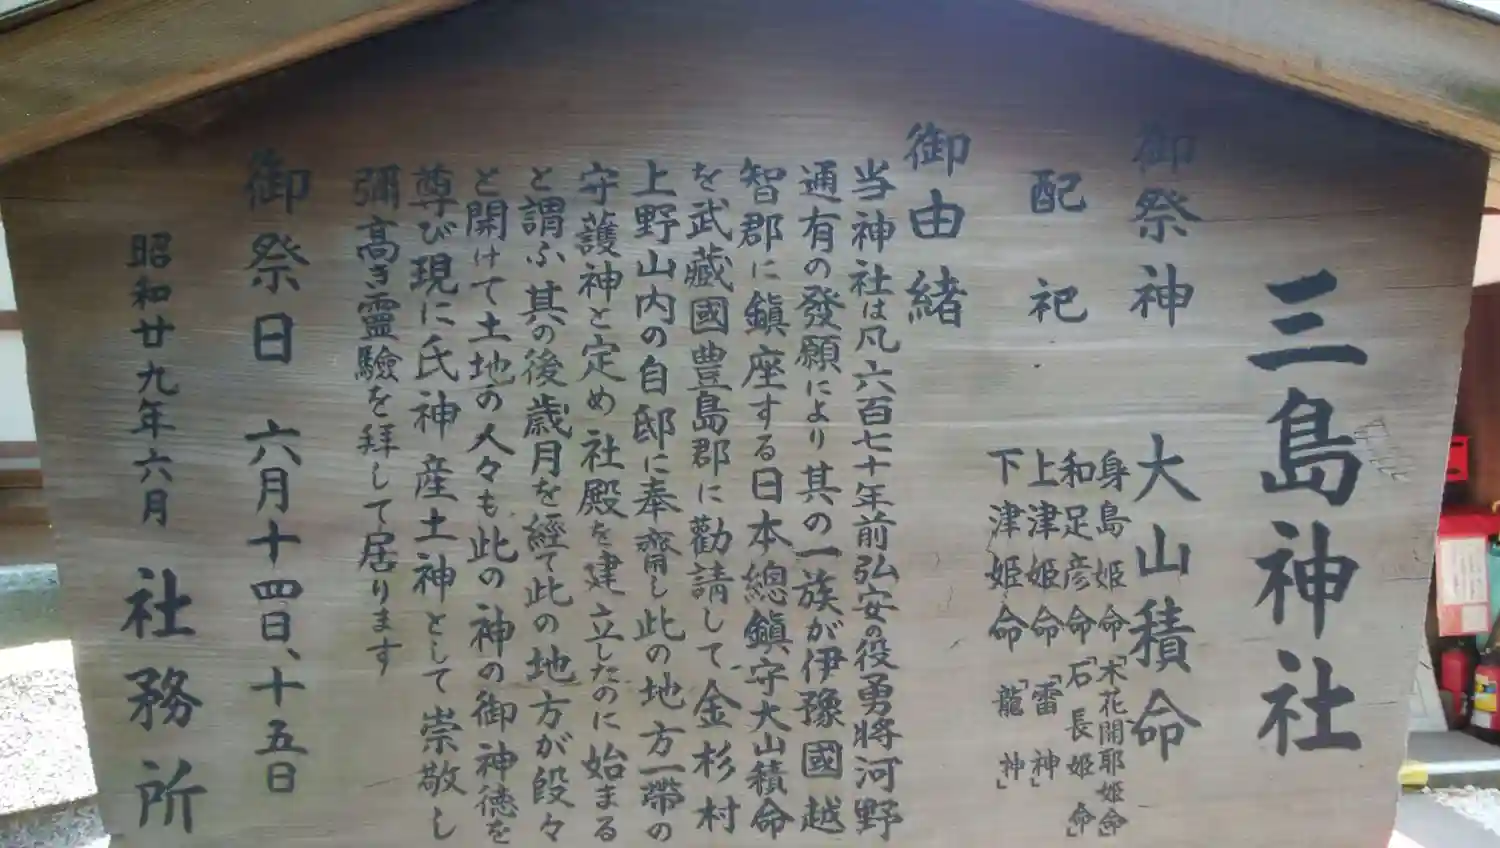 三島神社
御祭神 大山積命
配祀 身島姫命「木花開耶姫命」
和足彦命「石長姫命」
上津姫命「雷神」
下津姫命「龍神」
御由緒
当神社は凡六百七十年前弘安の役勇將河野
通有の發願により其の一族が伊豫國越
智郡に鎭座する日本總鎭守大山積命
を武藏國豊島郡に勸請して金杉村
上野山内の自邸に奉齋し此の地方一帶の
守護神と定め社殿を建立したのに始まる
と謂ふ其の後歳月を經て此の地方が段々
と開けて土地の人々も此の神の御神徳を
尊び現に氏神産土神として崇敬し
彌高き靈驗を拜して居ります
御祭日 六月十四日、十五日
昭和廿九年六月 社務所